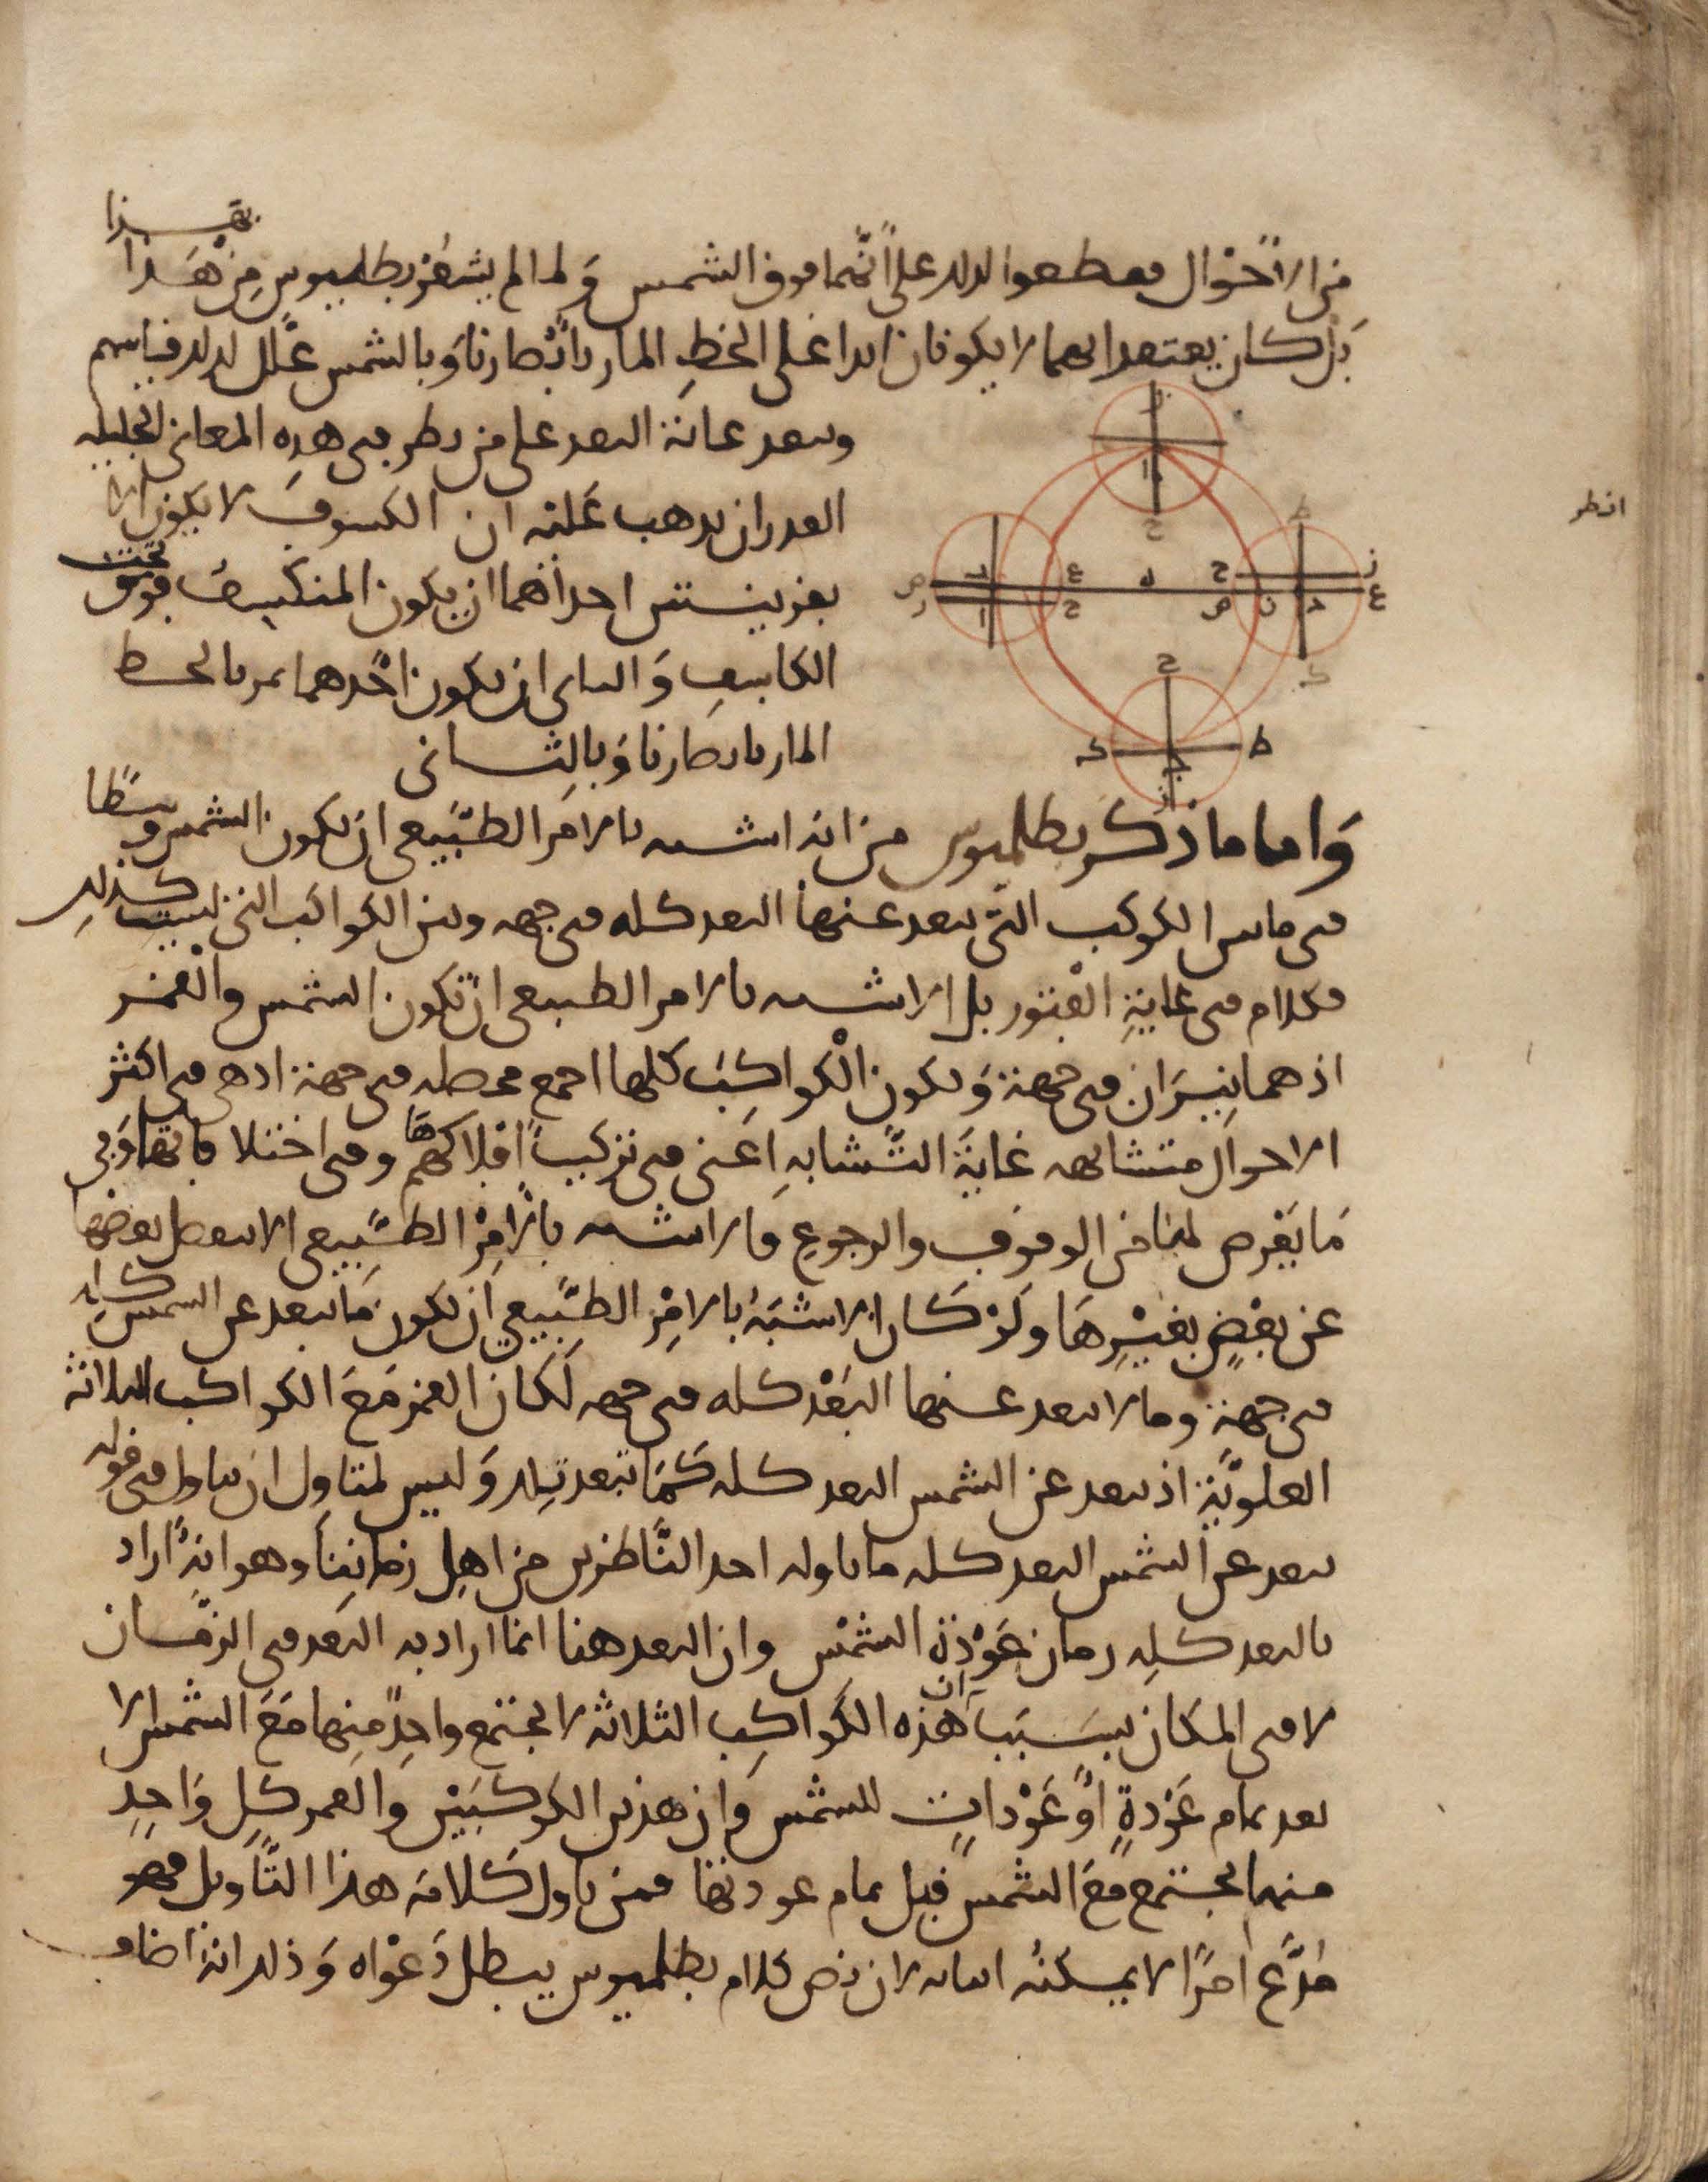 بهذا
من الاحوال فقطعوا لذلك على أنهما فوق الشمس ولما لم يشعر بطلميوس من هذا
بل كان يعتقد انهما لا يكونان ابدا على الخط المار بأبصارنا وبالشمس علل لذلك قياسهم
وبعد غاية البعد على من نظر في هذه المعاني الجليلة
القدر ان يذهب عليه ان الكسوف لا يكون الا
بعرينستس احداهما ان يكون المنكسف فوق تحت
الكاسف والثاني ان يكون احدهما يمر بالخط
المار بابصارنا وبالثاني
واما ما ذكر بطلميوس من انه اشبه بالامر الطبيعي ان تكون الشمس وسطا
في ما بين الكوكب التي تبعد عنها البعد كله في جهة وبين الكواكب التي ليست كذلك
فكلام في غاية الفتور بل الاشبه بالامر الطبيعي ان تكون الشمس والقمر
اذ هما نيران في جهة وتكون الكواكب كلها اجمع محصلة في جهة اذ هي في اكثر
الاحوال متشابهة غاية التشابه اعني في تركيب افلاكهم ها وفي اختلافاتها وفي
ما يعرض لها من الوقوف والرجوع فالاشبه بالامر الطبيعي الا يفصل بعضها
عن بعض بغيرها ولو كان الاشبه بالامر الطبيعي ان يكون ما يبعد عن الشمس كذلك
في جهة وما لا يبعد عنها البعد كله في جهة لكان القمر مع الكواكب الثلاثة
العلوية اذ يبعد عن الشمس البعد كله كما تبعد تلك وليس لمتاول ان يتاول في قوله
يبعد عن الشمس البعد كله ما تاوله احد الناظرين من اهل زماننا وهو انه اراد
بالبعد كله زمان عودة الشمس وان البعد هنا انما اراد به البعد في الزمان
لا في المكان بسبب ان هذه الكواكب الثلاثة لا يجتمع واحد منها مع الشمس الا
بعد تمام عودة أو عودات للشمس وان هذين الكوكبين والقمر كل واحد
منها يجتمع مع الشمس قبل تمام عودتها فمن تاول كلامه هذا التأويل فهو
مدع امرا لا يمكنه اثباته لان نص كلام بطلميوس يبطل دعواه وذلك انه اضاف
انظر